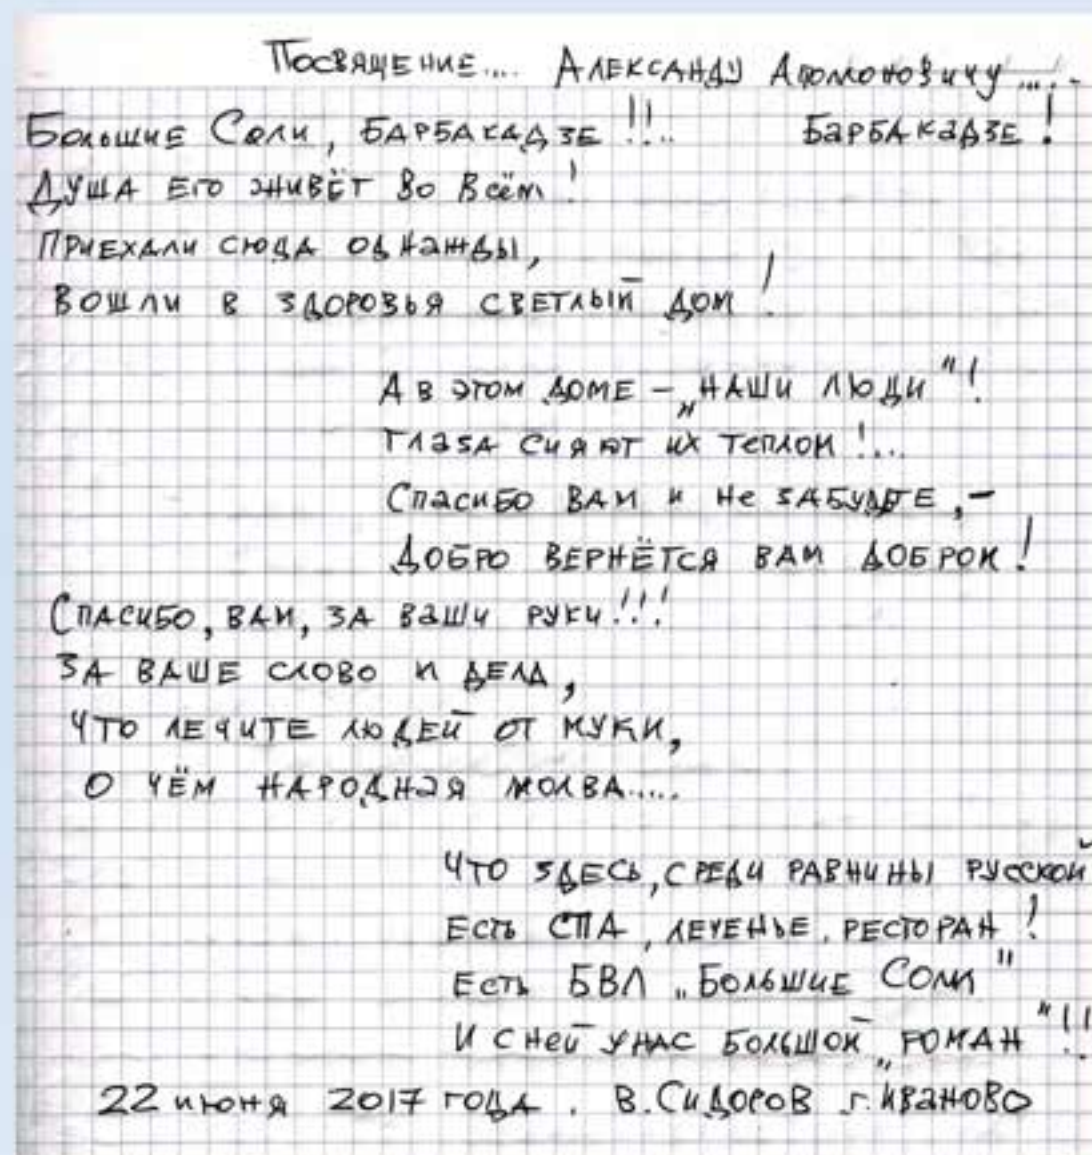 Посвящение.... Александу Афононовичу.....
Большие Соли, БАРБАКАДЗЕ!!... БАРБАКАДЗЕ!
Душа его живёт во всём!
Приехали сюда однажды,
Вошли в здоровья светлый дом!
А в этом доме – „наши люди"!
Глаза сияют их теплом!...
Спасибо вам и не забудте,–
Добро вернётся вам добром!
Спасибо, вам, за ваши руки!!!
За ваше слово и дела,
Что лечите людей от муки,
О чём народная молва.....
Что здесь, среди равнины русской
Есть СПА, леченье, ресторан!
Есть БВЛ „Большие Соли"
И с ней у нас большой „роман"!!
22 июня 2017 года. В. Сидоров г. Иваново